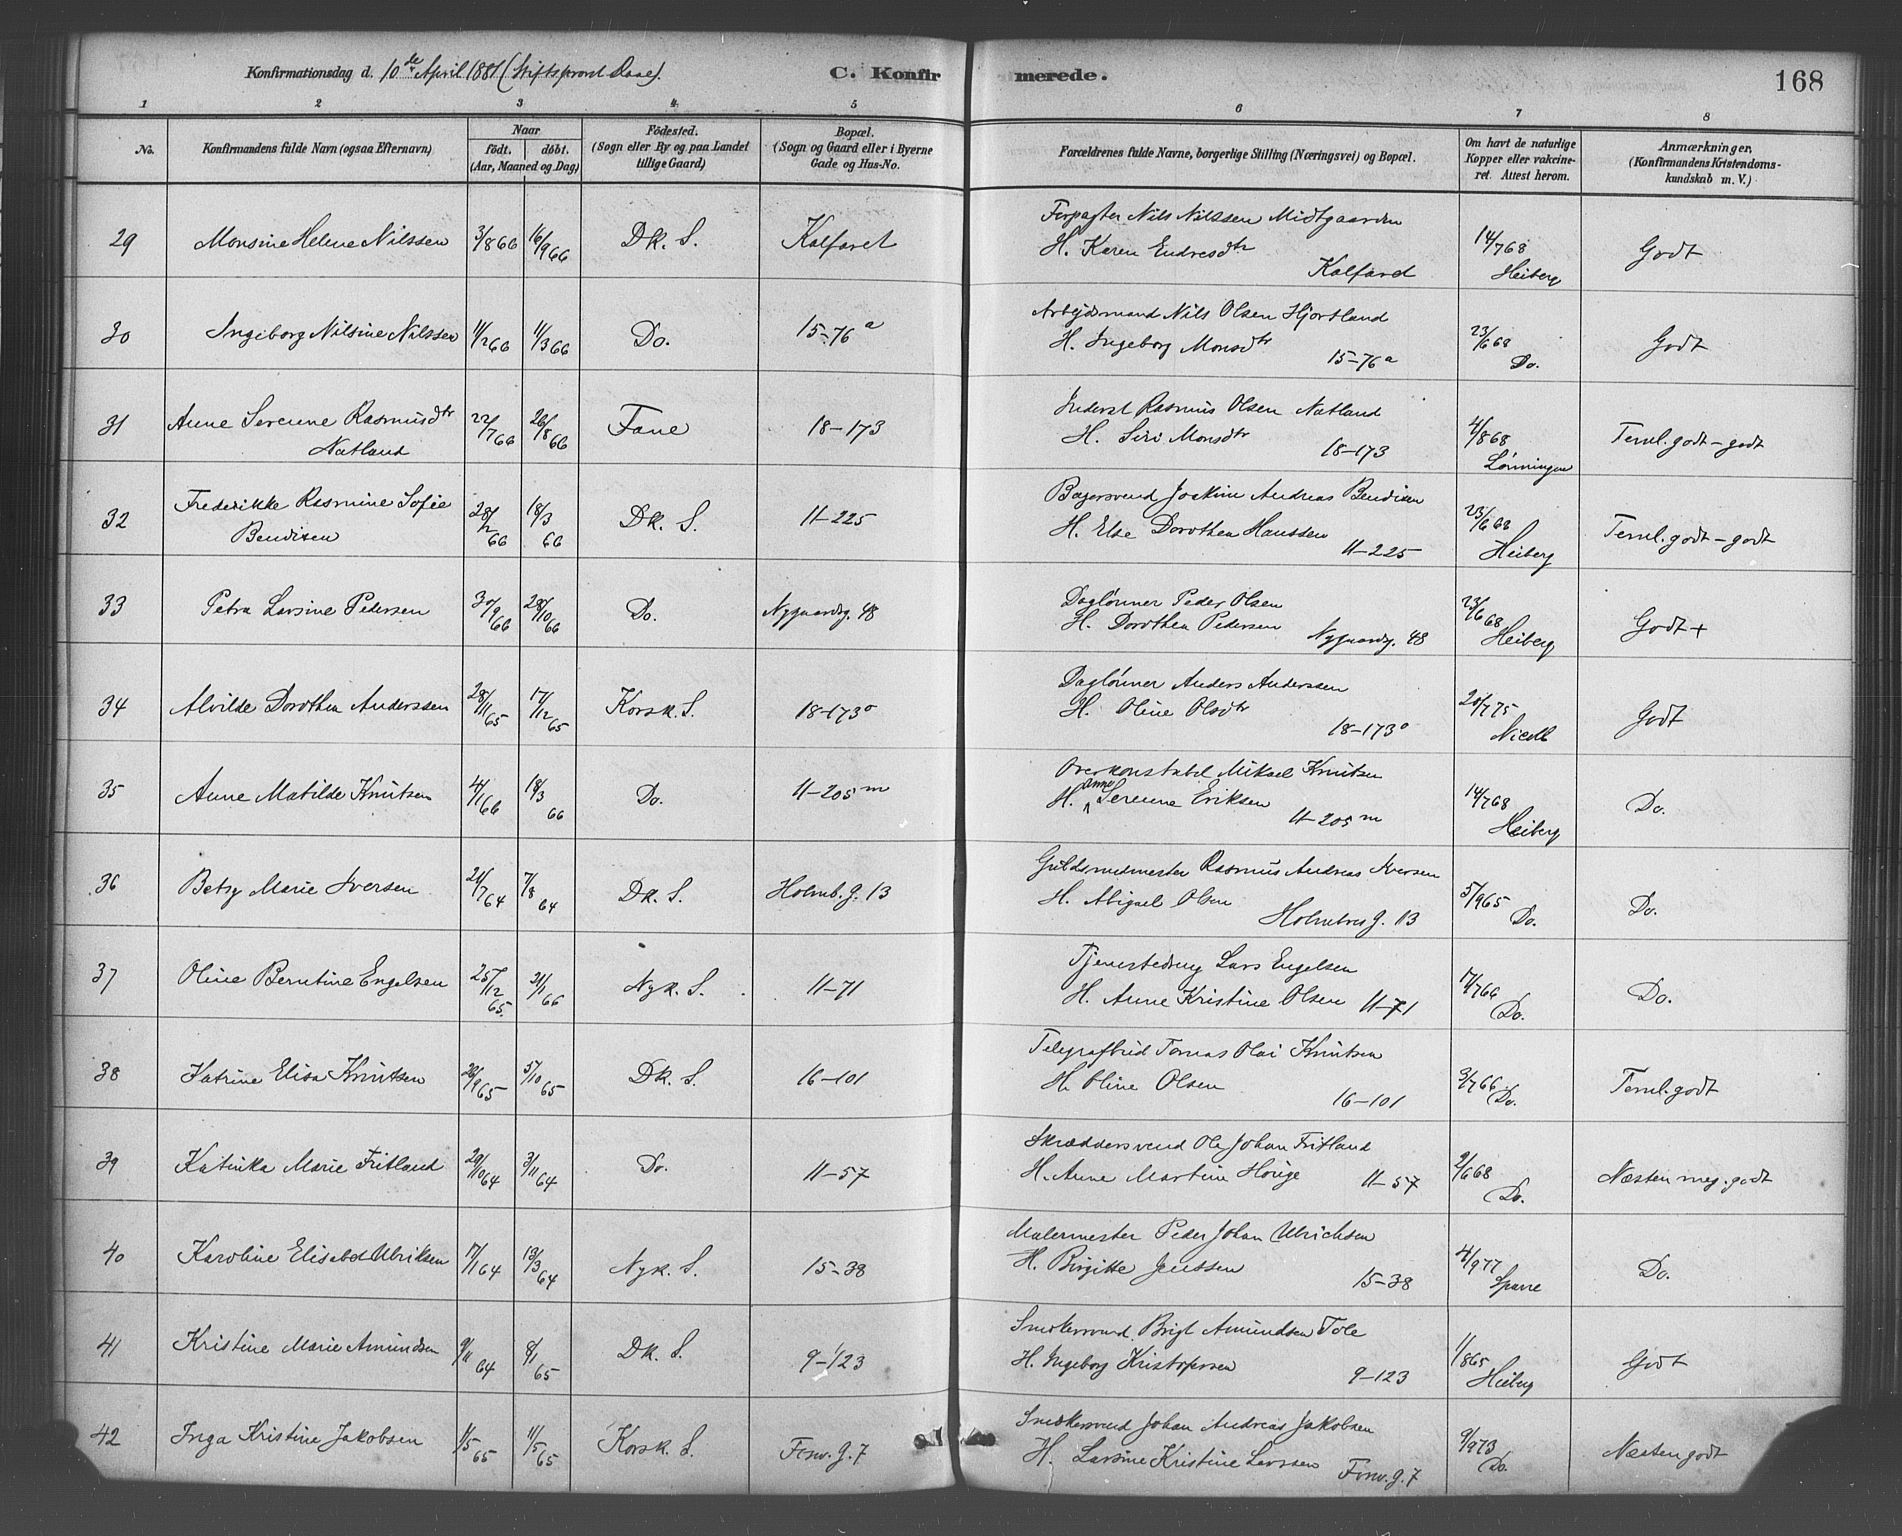 Konfirmationsdag d. 10de April 1881 (Stiftsprovst Daae).
C. Konfirmerede.
168
1 2 3 4 5 6 7 8
No.
Konfirmandens fulde Navn (ogsaa Efternavn)
Naar
födt. döbt.
(Aar, Maaned og Dag)
Födested.
(Sogn eller By og paa Landet
tillige Gaard)
Bopæl.
(Sogn og Gaard eller i Byerne
Gade og Hus-No.
Forældrenes fulde Navne, borgerlige Stilling (Næringsvei) og Bopæl.
Om havt de naturlige
Kopper eller vakcine-
ret. Attest herom.
Anmærkninger,
(Konfirmandens Kristendoms-
kundskab m. V.)
29 Monsine Helene Nilssen 3/8 66 16/9 66 Dk. S. Kalfaret
Forpagter Nils Nilssen Midtgaarden
H. Karen Endresdtr
Kalfaret
14/7 68
Heiberg
Godt
30 Ingeborg Nilsine Nilssen 11/2 66 11/3 66 Do. 15-76a
Arbejdsmand Nils Olsen Hjortland
H. Ingeborg Monsdtr
15-76a
23/6 68
Do.
Godt
31 Anne Serenne Rasmusdtr
Natland
22/7 66 26/8 66 Fane 18-173
Inderst Rasmus Olsen Natland
H. Siri Monsdtr
18-173
4/8 68
Lönningen
Teml. godt - godt
32 Frederikke Rasmine Sofie
Bendixen
28/12 66 18/3 66 Dk. S. 11-225
Bagersvend Joakim Andreas Bendixen
H. Else Dorothea Hanssen
11-225
23/6 68
Heiberg
Teml. godt - godt
33 Petra Larsine Pedersen 30/9 66 28/10 66 Do. Nygaardsg. 48
Daglönner Peder Olsen
H. Dorothea Pedersen
Nygaardsg. 48
23/6 68
Heiberg
Godt +
34 Alvilde Dorothea Anderssen 28/11 65 17/12 65 Korsk. S. 18-173o
Daglönner Anders Anderssen
H. Oline Olsdtr
18-173o
20/7 75
Godt
35 Anne Matilde Knutsen 4/1 66 18/3 66 Do. 11-205m
Overkonstabel Mikael Knutsen
H. Anne Serenne Eriksen
11-205m
14/7 68
Heiberg
Do.
36 Betsy Marie Iversen 24/7 64 7/8 64 Dk. S. Holmb. G. 13
Guldsmedmester Rasmus Andreas Iversen
H. Abigael Olsen
13
5/9 65
Do.
Do.
37 Oline Berntine Engelsen 25/12 65. 31/1 66 Nyk. S. 11-71
Lars Engelsen
H. Anne Kristine Olsen 11-71
17/7 66
Do.
Do.
38 Katrine Elisa Knutsen 20/9 65 5/10 65 Dk. S. 16-101
Telegrafbud Tomas Olai Knutsen
H. Oline Olsen
16-101
3/7 66
Do.
Teml. godt
39 Katinka Marie Fritland 29/10 64 3/11 64 Do. 11-57
Skræddersvend Ole Johan Fritland
H. Anne Martine Houge 11-57
2/6 68
Do.
Næsten meg. godt
40 Karoline Elisabet Ulriksen 17/1 64 13/3 64 Nyk. S. 15-38
Malermester Peder Johan Ulrichsen
H. Birgitte Jenssen
15-38
4/9 77
Sparre
Do.
41 Kristine Marie Amundsen 9/11 64 8/1 65 Dk. S. 9-123
Snedkersvend Brigt Amundsen Tole
H. Ingeborg Kristofersen
9-123
1/8 65
Heiberg
Godt
42 Inga Kristine Jakobsen 1/5 65 11/5 65 Korsk. S. Forsv. G. 7
Snedkersvend Johan Andreas Jakobsen
H. Larsine Kristine Larssen Forsv. G. 7
9/9 73
Do.
Næsten godt